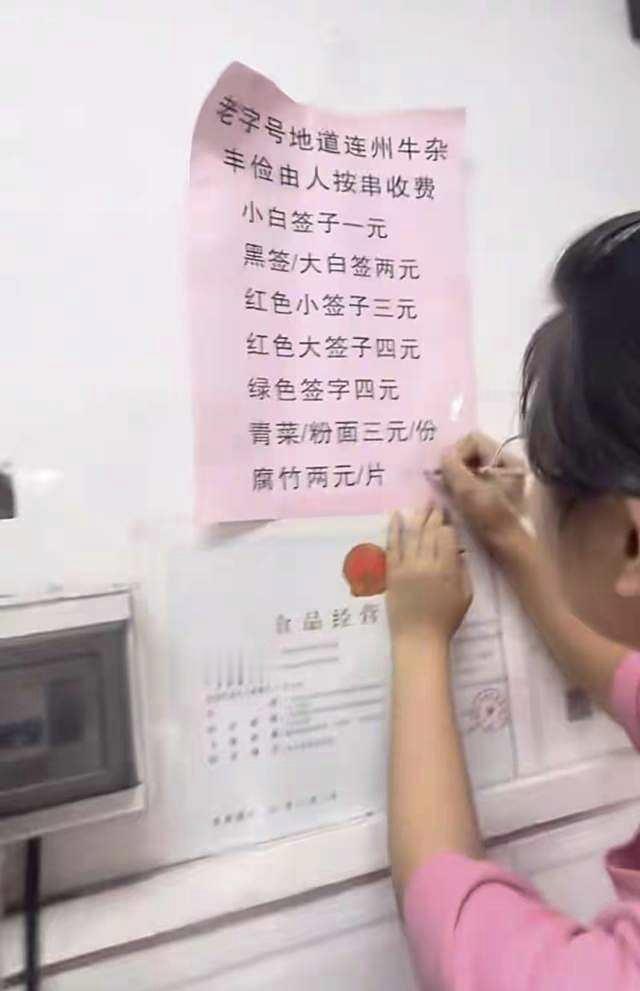 老字号地道连州牛杂
丰俭由人按串收费
小白签子一元
黑签/大白签两元
红色小签子三元
红色大签子四元
绿色签字四元
青菜/粉面三元/份
腐竹两元/片
食品经营